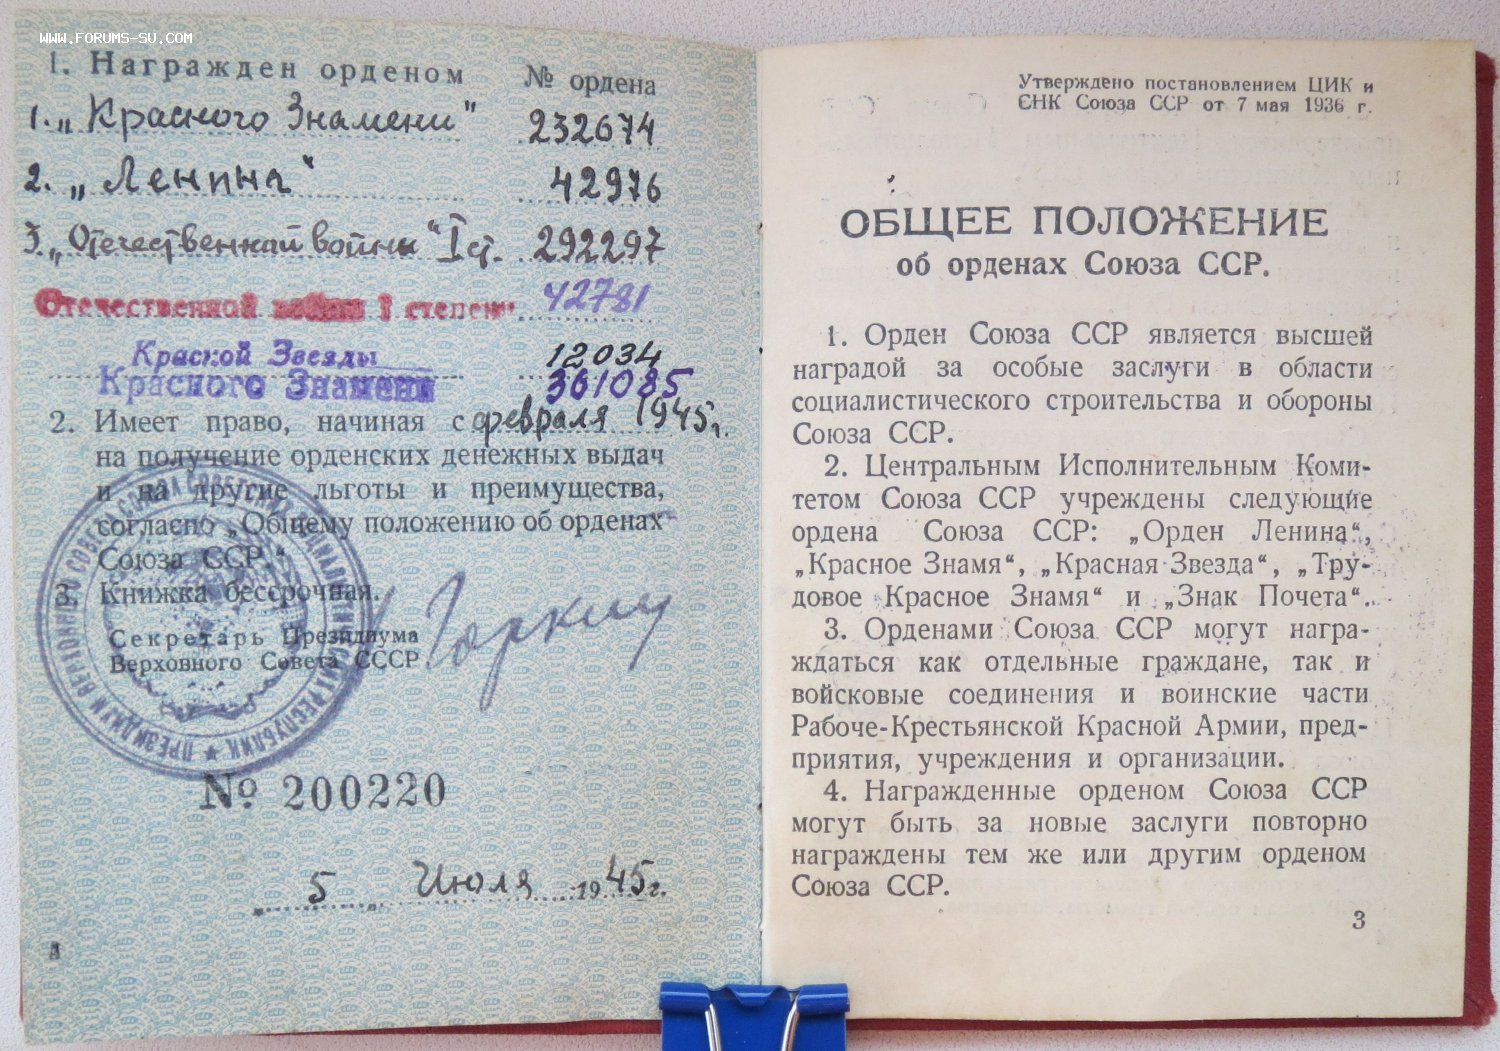 WWW.FORUMS-SU.COM
1. Награжден орденом № ордена
1. „Красного Знамени" 232674
2. „Ленина" 42976
3. „Отечественной войны" I ст. 292297
Отечественной войны I степени 42781
Красной Звезды 12034
Красного Знамени 361085
2. Имеет право, начиная с февраля 1945 г.
на получение орденских денежных выдач
и на другие льготы и преимущества,
согласно „Общему положению об орденах
Союза ССР.“
3. Книжка бессрочная.
Секретарь Президиума
Верховного Совета СССР Горкин
ПРЕЗИДИУМ ВЕРХОВНОГО СОВЕТА СОЮЗА СОВЕТСКИХ СОЦИАЛИСТИЧЕСКИХ РЕСПУБЛИК
№ 200220
5 Июля 1945 г.
Утверждено постановлением ЦИК и
СНК Союза ССР от 7 мая 1936 г.
ОБЩЕЕ ПОЛОЖЕНИЕ
об орденах Союза ССР.
1. Орден Союза ССР является высшей
наградой за особые заслуги в области
социалистического строительства и обороны
Союза ССР.
2. Центральным Исполнительным Коми-
тетом Союза ССР учреждены следующие
ордена Союза ССР: „Орден Ленина“,
„Красное Знамя“, „Красная Звезда“, „Тру-
довое Красное Знамя“ и „Знак Почета“.
3. Орденами Союза ССР могут награ-
ждаться как отдельные граждане, так и
войсковые соединения и воинские части
Рабоче-Крестьянской Красной Армии, пред-
приятия, учреждения и организации.
4. Награжденные орденом Союза ССР
могут быть за новые заслуги повторно
награждены тем же или другим орденом
Союза ССР.
3